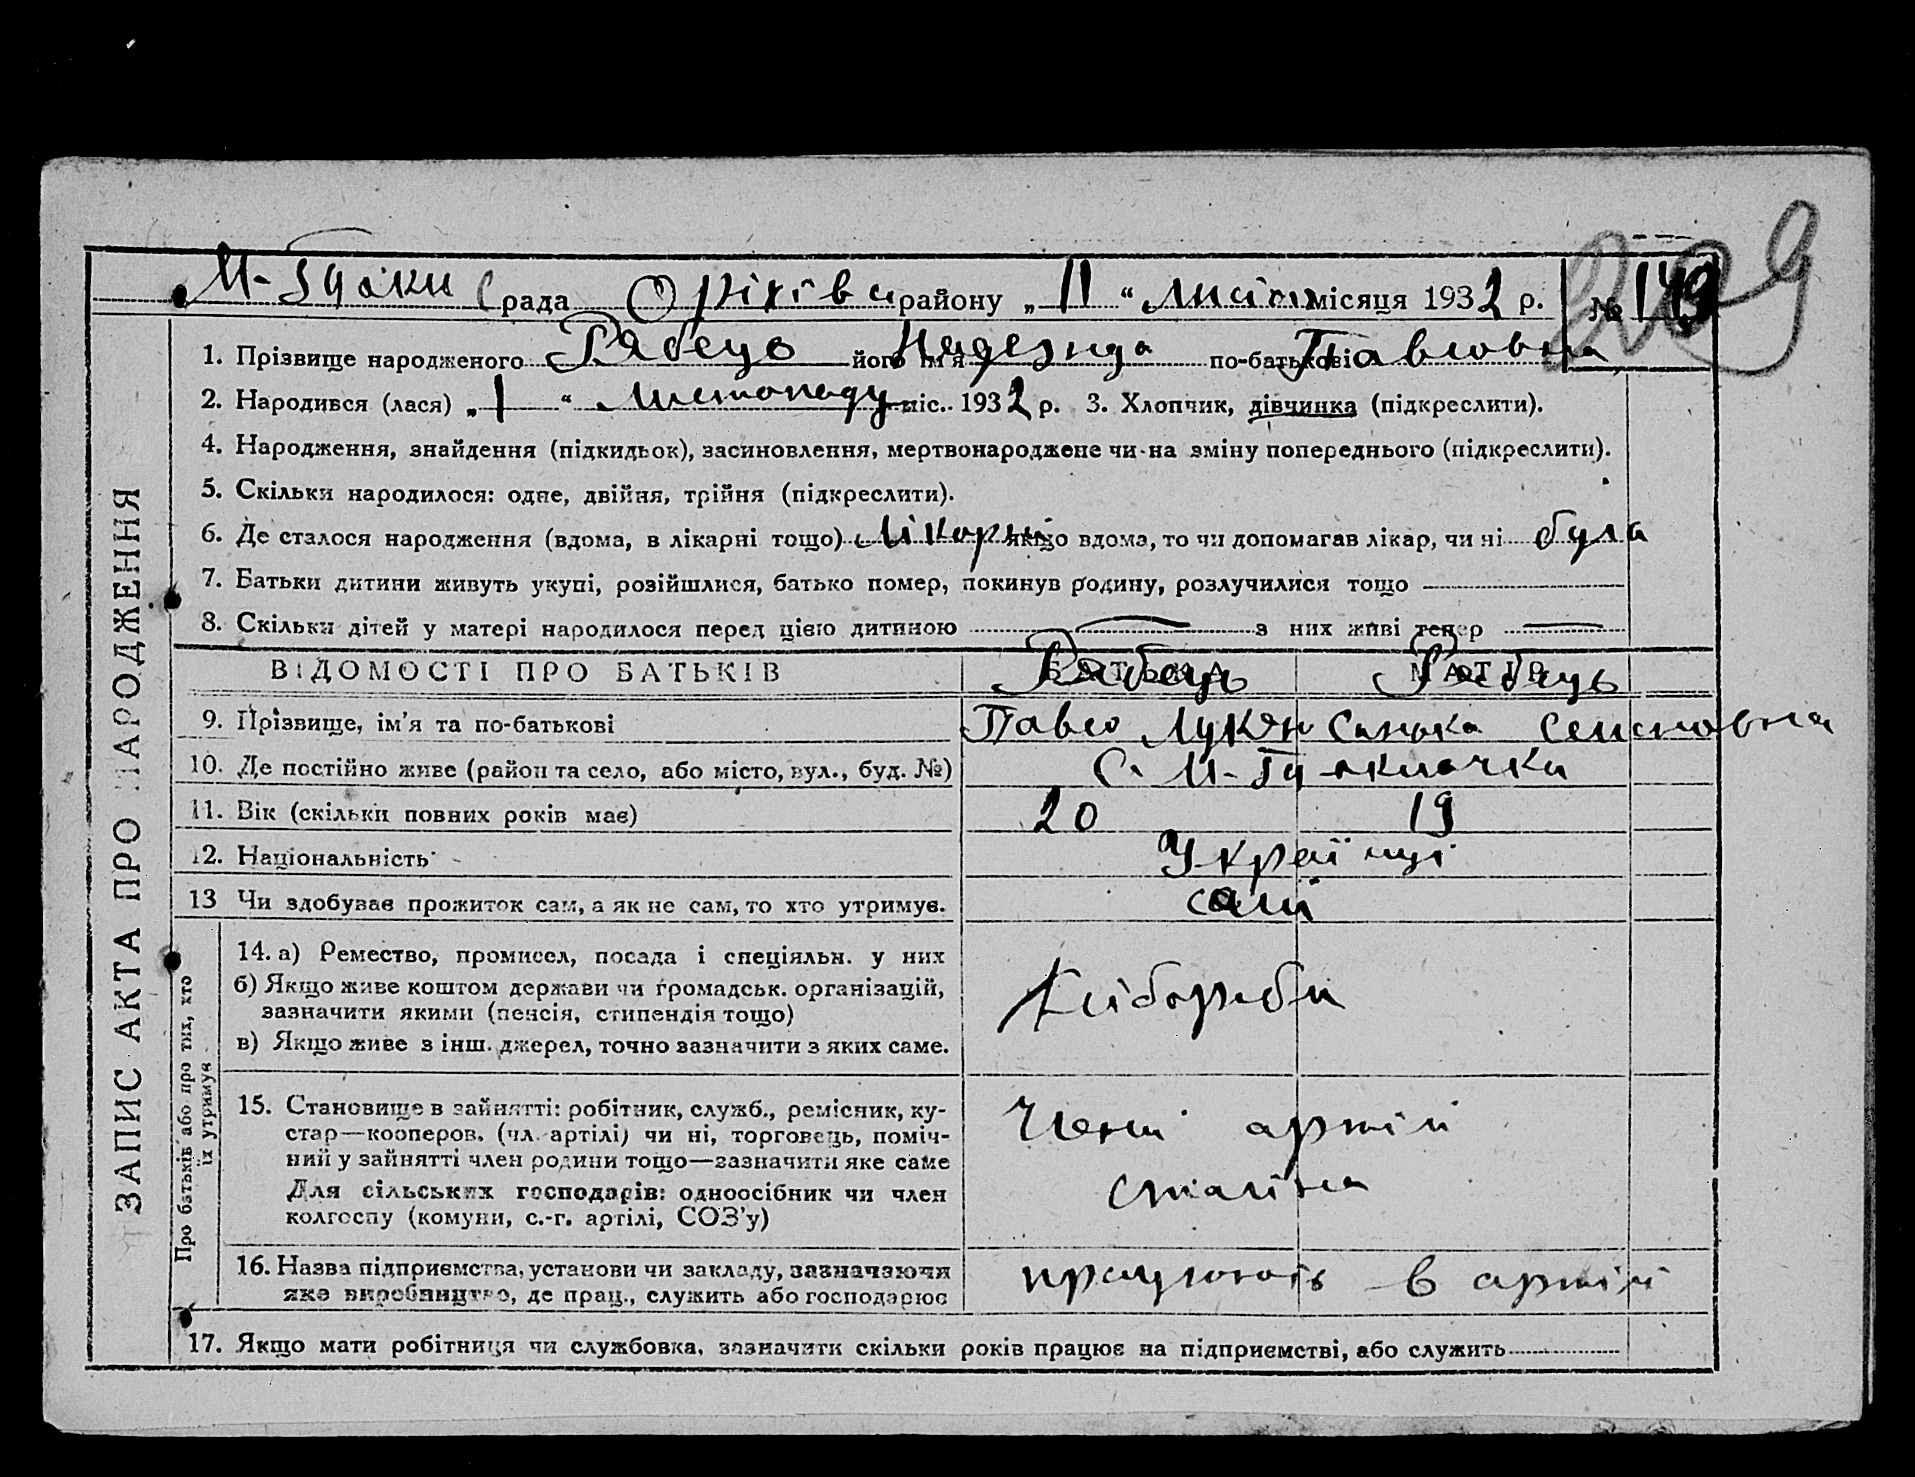 209
рада Оріхівс району „11“ Лист місяця 1932 р. № 149
1. Прізвище народженого Рябець його ім'я Надезда по-батькові Павловна
2. Народився (лася) „1“ Листопаду міс. 1932 р. 3. Хлопчик, дівчинка (підкреслити).
4. Народження, знайдення (підкидьок), засиновлення, мертвонароджене чи на зміну попереднього (підкреслити).
5. Скільки народилося: одне, двійня, трійня (підкреслити).
6. Де сталося народження (вдома, в лікарні тощо) Лікарні якщо вдома, то чи допомагав лікар, чи ні була
7. Батьки дитини живуть укупі, розійшлися, батько помер, покинув родину, розлучилися тощо
8. Скільки дітей у матері народилося перед цією дитиною — з них живі тепер —
ВІДОМОСТІ ПРО БАТЬКІВ БАТЬКА МАТІР
Рябець Рябець
9. Прізвище, ім'я та по-батькові Павло Лукян Санька Семеновна
10. Де постійно живе (район та село, або місто, вул., буд. №) С. М-
11. Вік (скільки повних років має) 20 19
12. Національність Українці
13 Чи здобував прожиток сам, а як не сам, то хто утримує. самі
14. а) Ремество, промисел, посада і спеціяльн. у них
б) Якщо живе коштом держави чи громадськ. організацій,
зазначити якими (пенсія, стипендія тощо)
в) Якщо живе з інш. джерел, точно зазначити з яких саме.
Хлібороби
15. Становище в зайнятті: робітник, служб., ремісник, ку-
стар—кооперов. (чл. артілі) чи ні, торговець, поміч-
ний у зайнятті член родини тощо—зазначити яке саме
Для сільських господарів: одноосібник чи член
колгоспу (комуни, с.-г. артілі, СОЗ'у)
Члени артілі
Сталіна
16. Назва підприємства, установи чи закладу, зазначаючи
яке виробництво, де прац., служить або господарює
працюють в артілі
17. Якщо мати робітниця чи службовка, зазначити скільки років працює на підприємстві, або служить
ЗАПИС АКТА ПРО НАРОДЖЕННЯ
Про батьків або про тих, хто
їх утримує